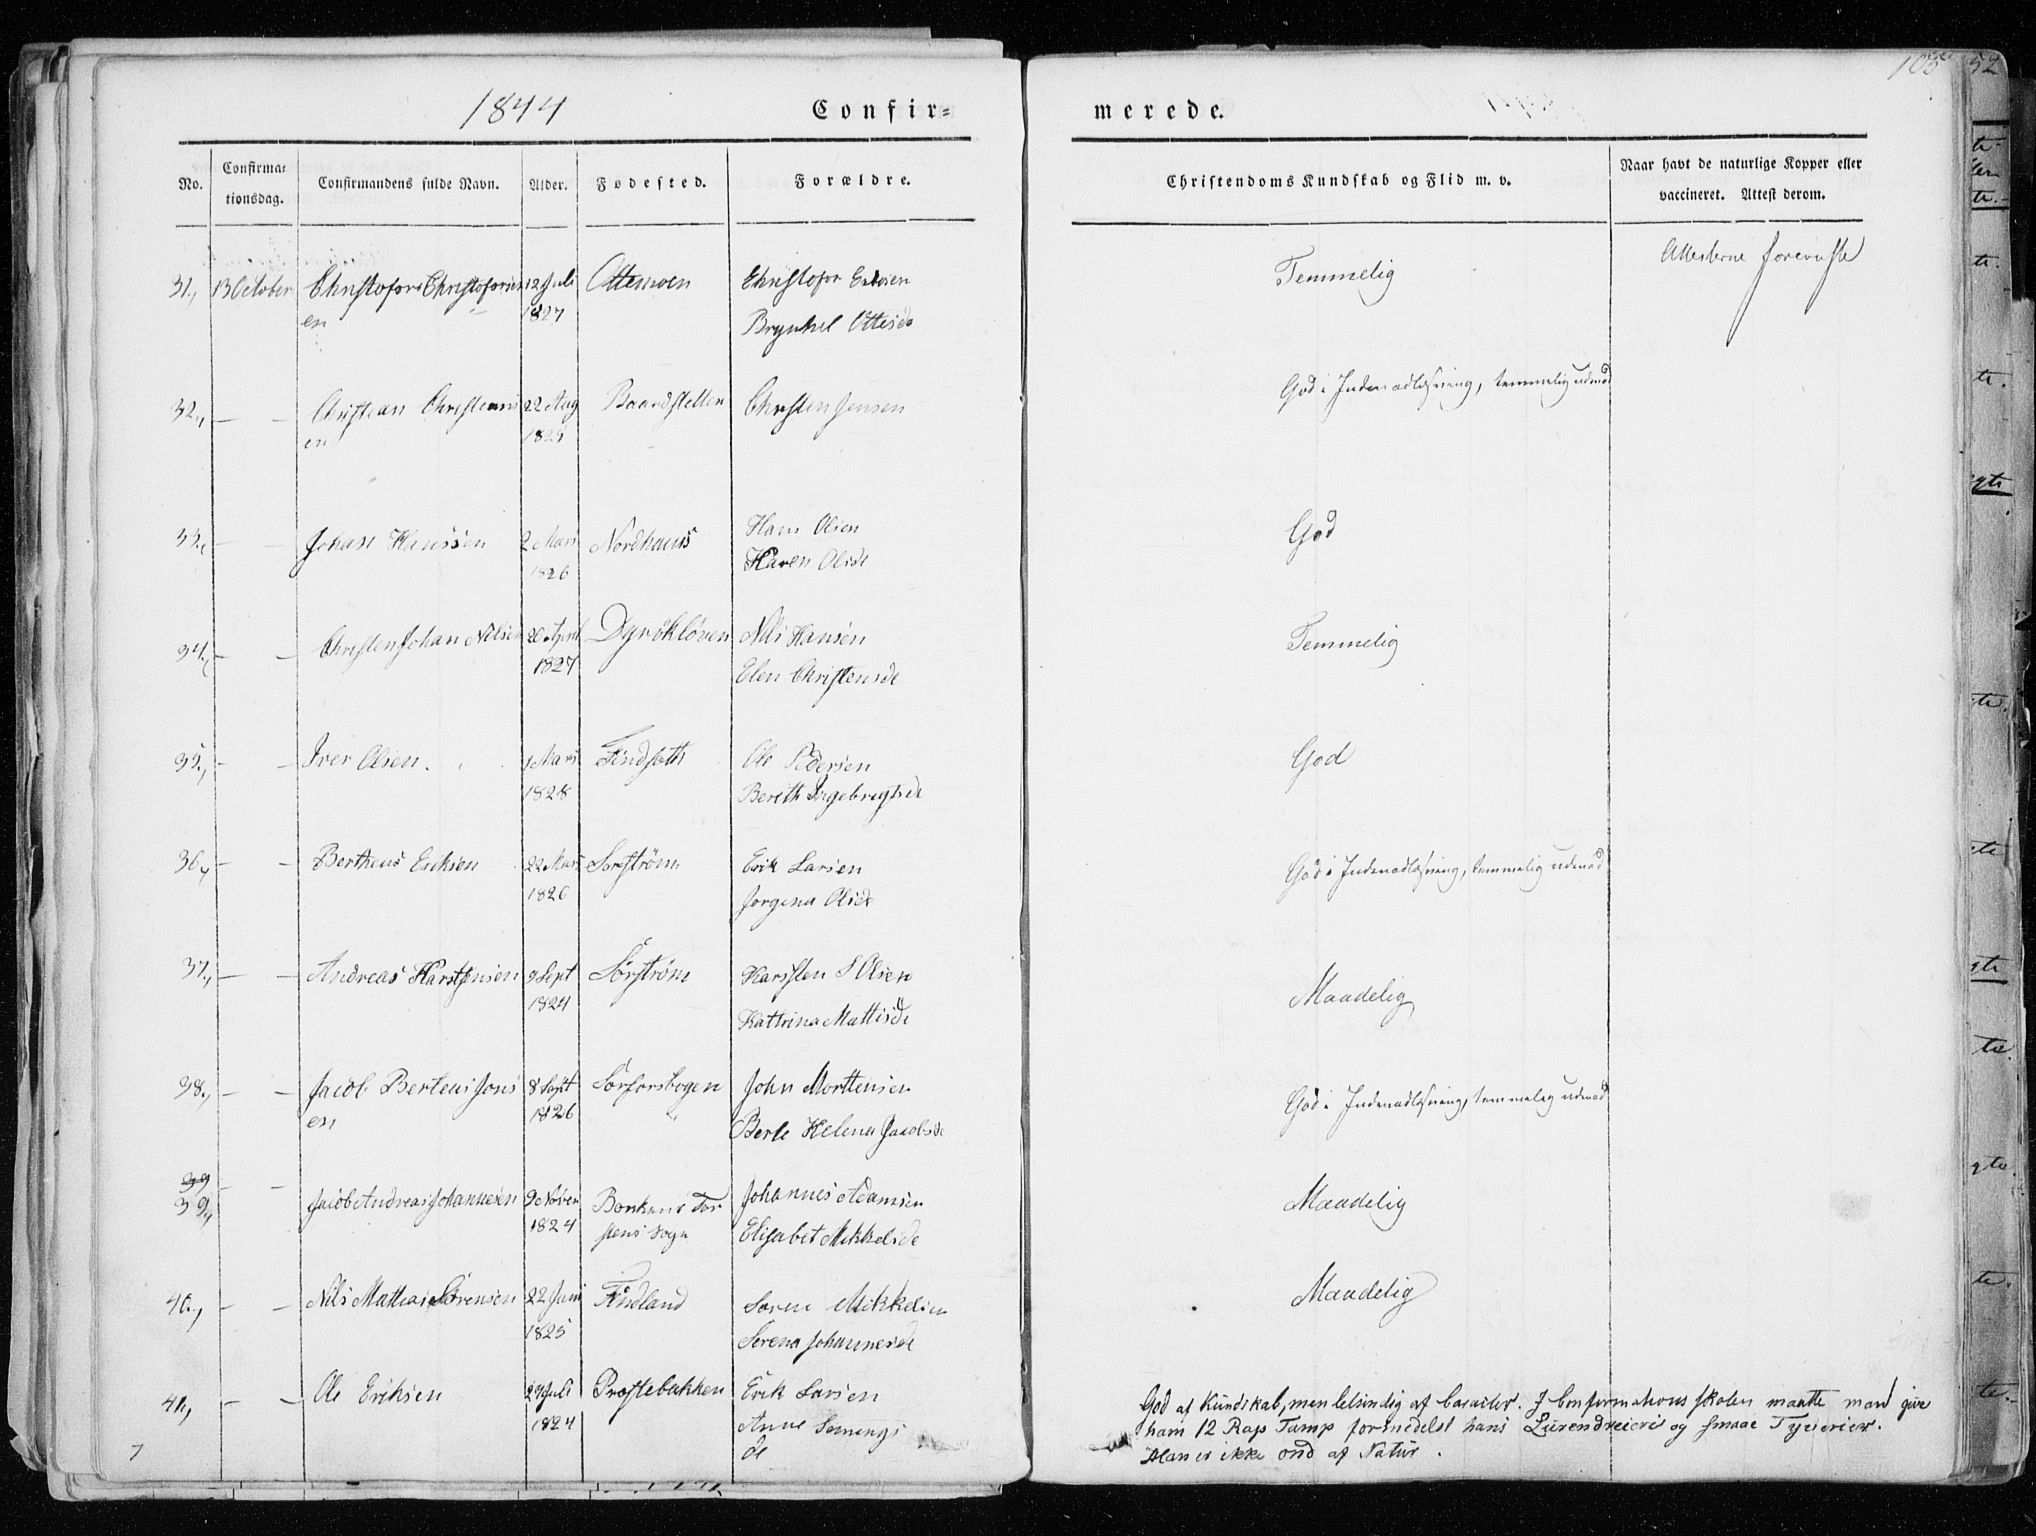 1844
Confir=
merede.
105
52
No.
Confirma:
tionsdag.
Confirmandens fulde Navn.
Alder.
Fødested.
Forældre.
Christendoms Kundskab og Flid m. v.
Naar havt de naturlige Kopper eller
vaccineret. Attest derom.
31., 13 October Christofor Christofors 12 Juli Ottemoen Christofor
en 1827 Brynhel Ottesd
Temmelig
Attesterne foreviste
32., — — Christian Christians 22 Aug Baardsletten Christen Jensen
en 1825
God i Indenadlæsning, temmelig udenad
33., — — Johan Hanssen 2 Mars Nordhaus Hans Olsen
1826 Karen Olsdt
God
34., — — Christen Johan Nilsen 20 April Dyrökløven Nils Hansen
1827 Elen Christensdt
Temmelig
35., — — Iver Olsen. 1 Mars Findsæth Ole Pedersen
1828 Berith Ingebrigtsdt
God
36., — — Bertheus Eriksen 22 Mars Sørstrøm Erik Larsen
1826 Jorgina Olsdt
God i Indenadlæsning, temmelig udenad
37., — — Andreas Karstensen 9 Sept Sørstrøm Karsten Olsen
1824 Kattrina Mattisdt
Maadelig
38., — — Jacob Berteus Jons 8 Sept Sørforsbogen John Morttensen
en 1826 Berte Helena Jacobsdt
God i Indenadlæsning, temmelig udenad
39
39., — — Jacob Andreas Johannesen 9 Novem Tor Johannes Adamsen
1824 stens Sogn Elisabet Mikkelsdt
Maadelig
40., — — Nils Mathias Sörensen 22 Juni Findland Søren Mikkelsen
1825 Serena Johannesdt
Maadelig
41., — — Ole Eriksen 29 Juli Præstebakken Erik Larsen
1824 Anne
dt
God af Kundskab, men letsindig af Caracter. I Confirmationsskolen maatte man give
ham 12 Rap Tamp formedelst hans Lurendreieri og smaae Tyverier.
Han er ikke ond af Natur.
7